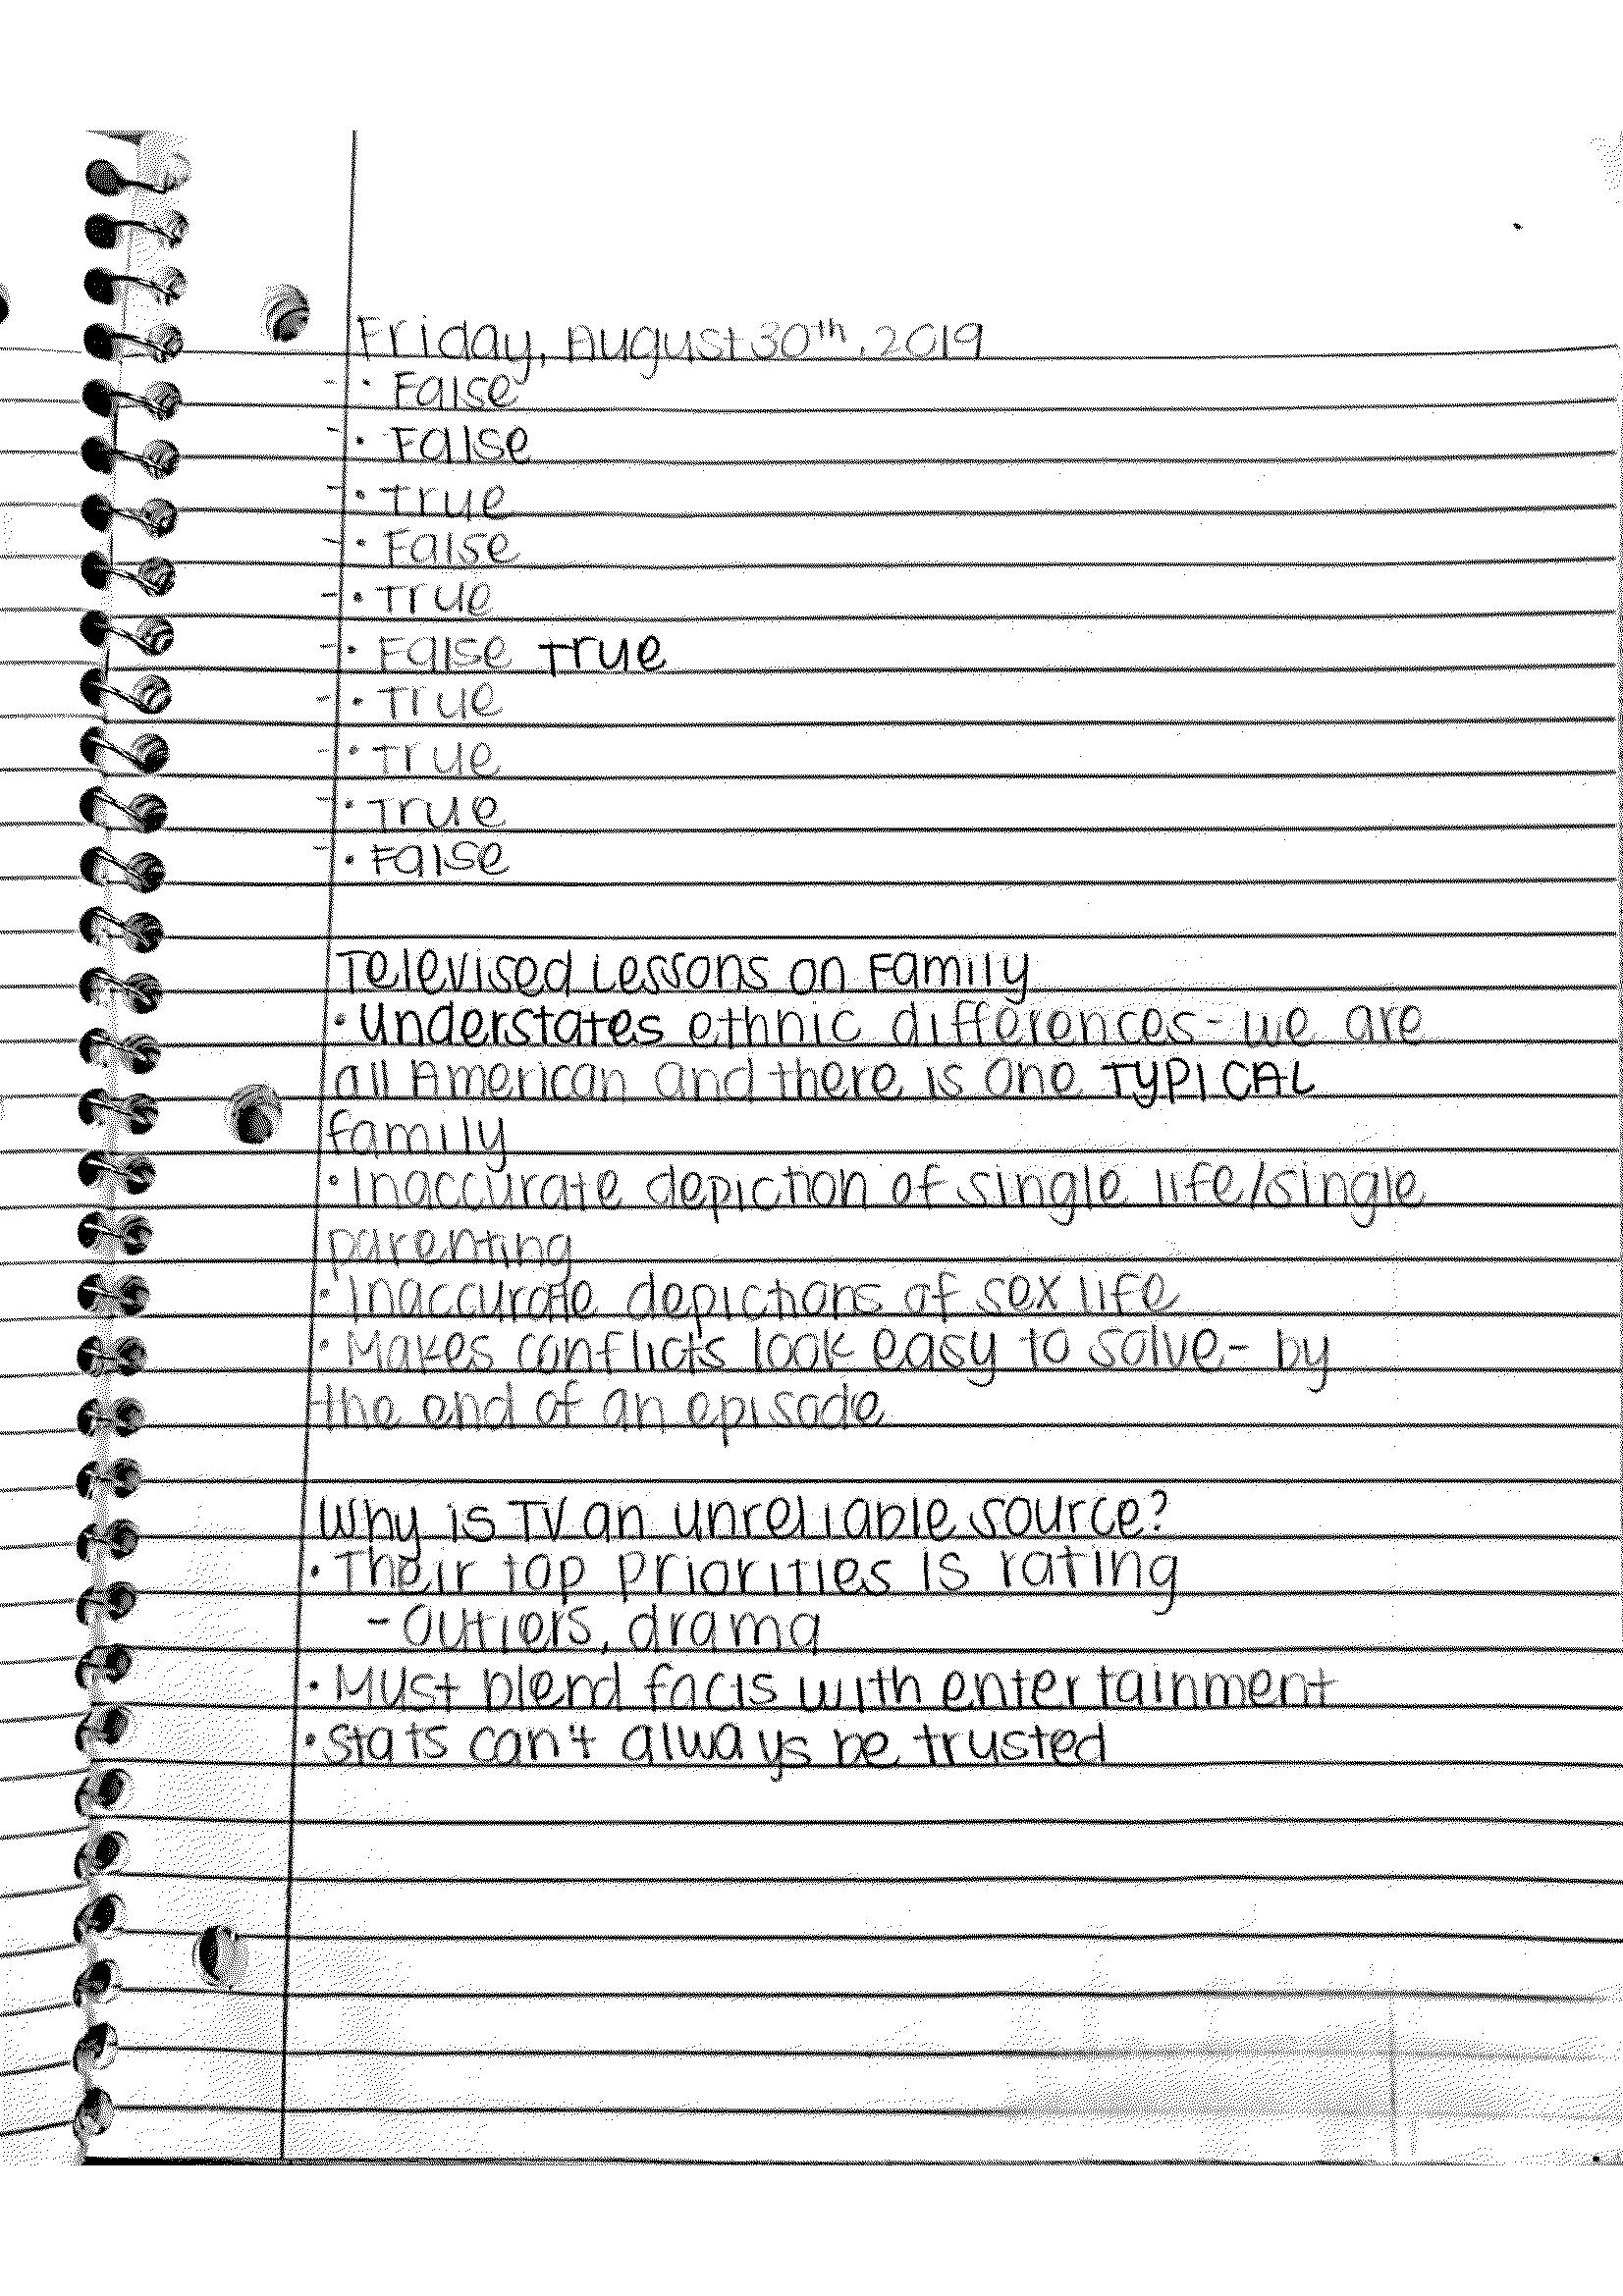 Friday, August 30th, 2019
- • False
- • False
- • True
- • False
- • True
- • False True
- • True
- • True
- • True
- • False
Televised Lessons on Family
• Understates ethnic differences - we are
all American and there is one TYPICAL
family
• Inaccurate depiction of single life/single
parenting
• Inaccurate depictions of sex life
• Makes conflicts look easy to solve - by
the end of an episode
Why is TV an unreliable source?
• Their top priorities is rating
- Outliers, drama
• Must blend facts with entertainment
• Stats can't always be trusted